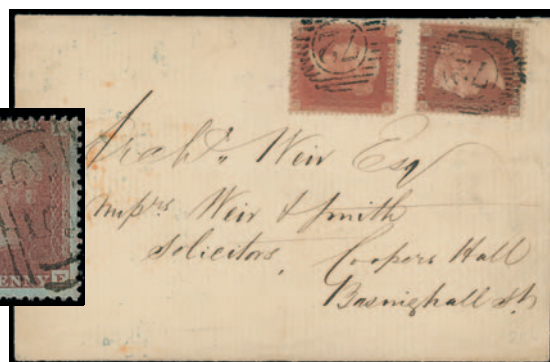 Archd. Weir Esq
Messrs Weir & Smith
Solicitors, Coopers Hall
Basinghall St.
72
72
ENNY E